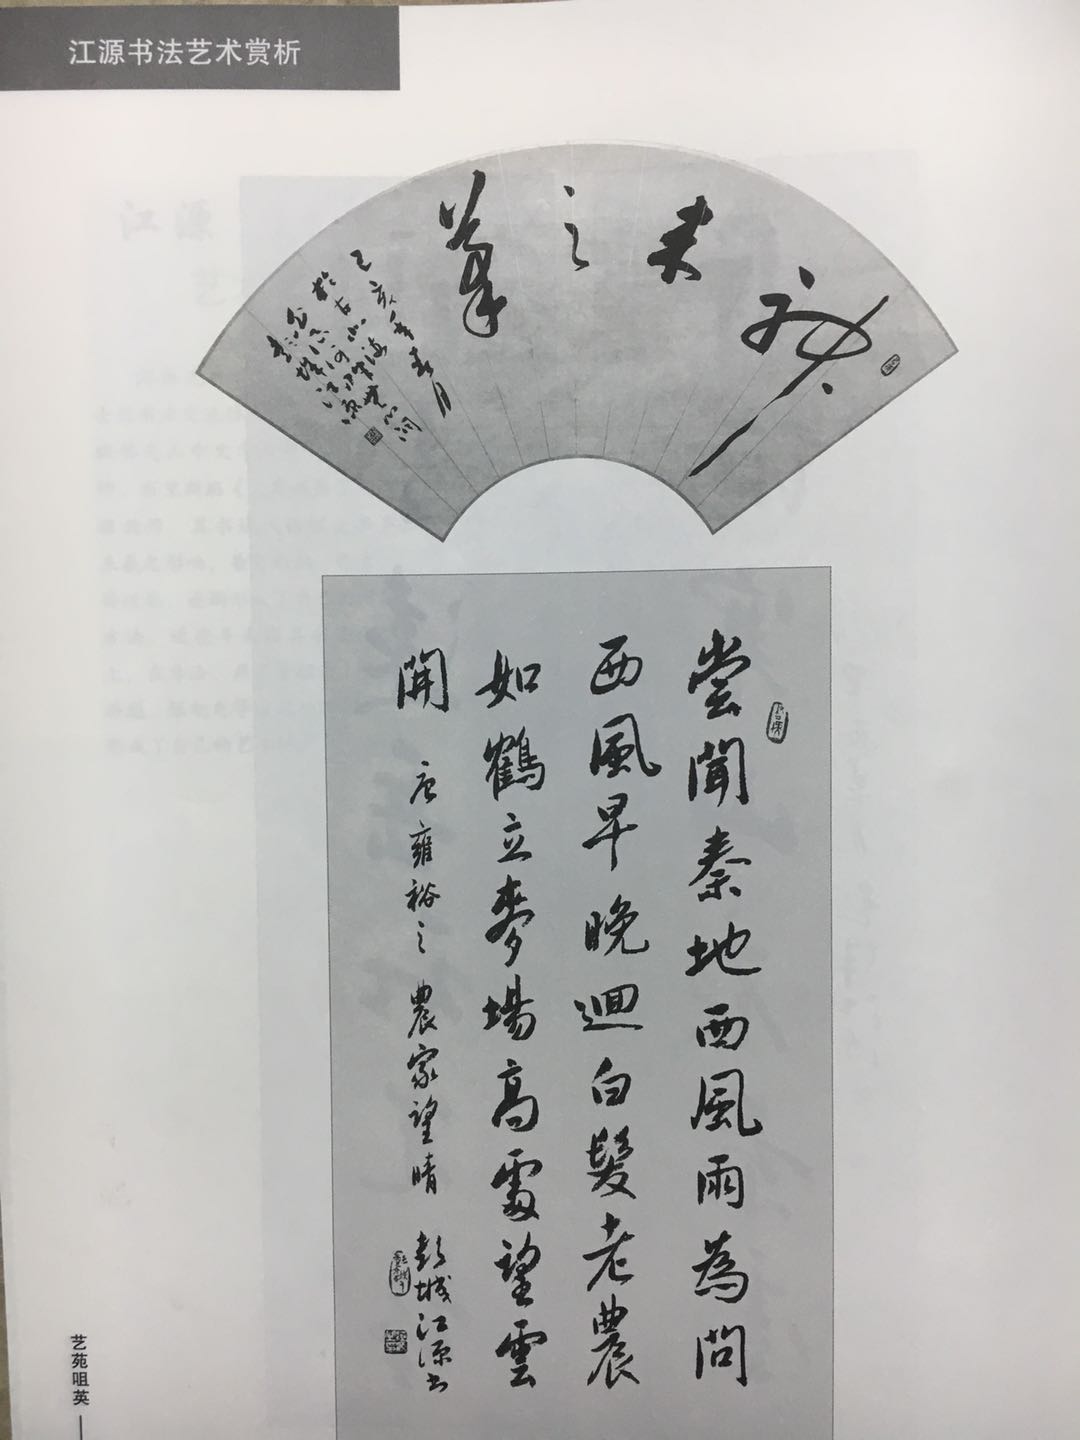 江源书法艺术赏析
己亥年春月
嘗聞秦地西風雨為問
西風早晚迴白髮老農
如鶴立麥場高處望雲
開
唐雍裕之農家望晴
彭城江源书
艺苑咀英